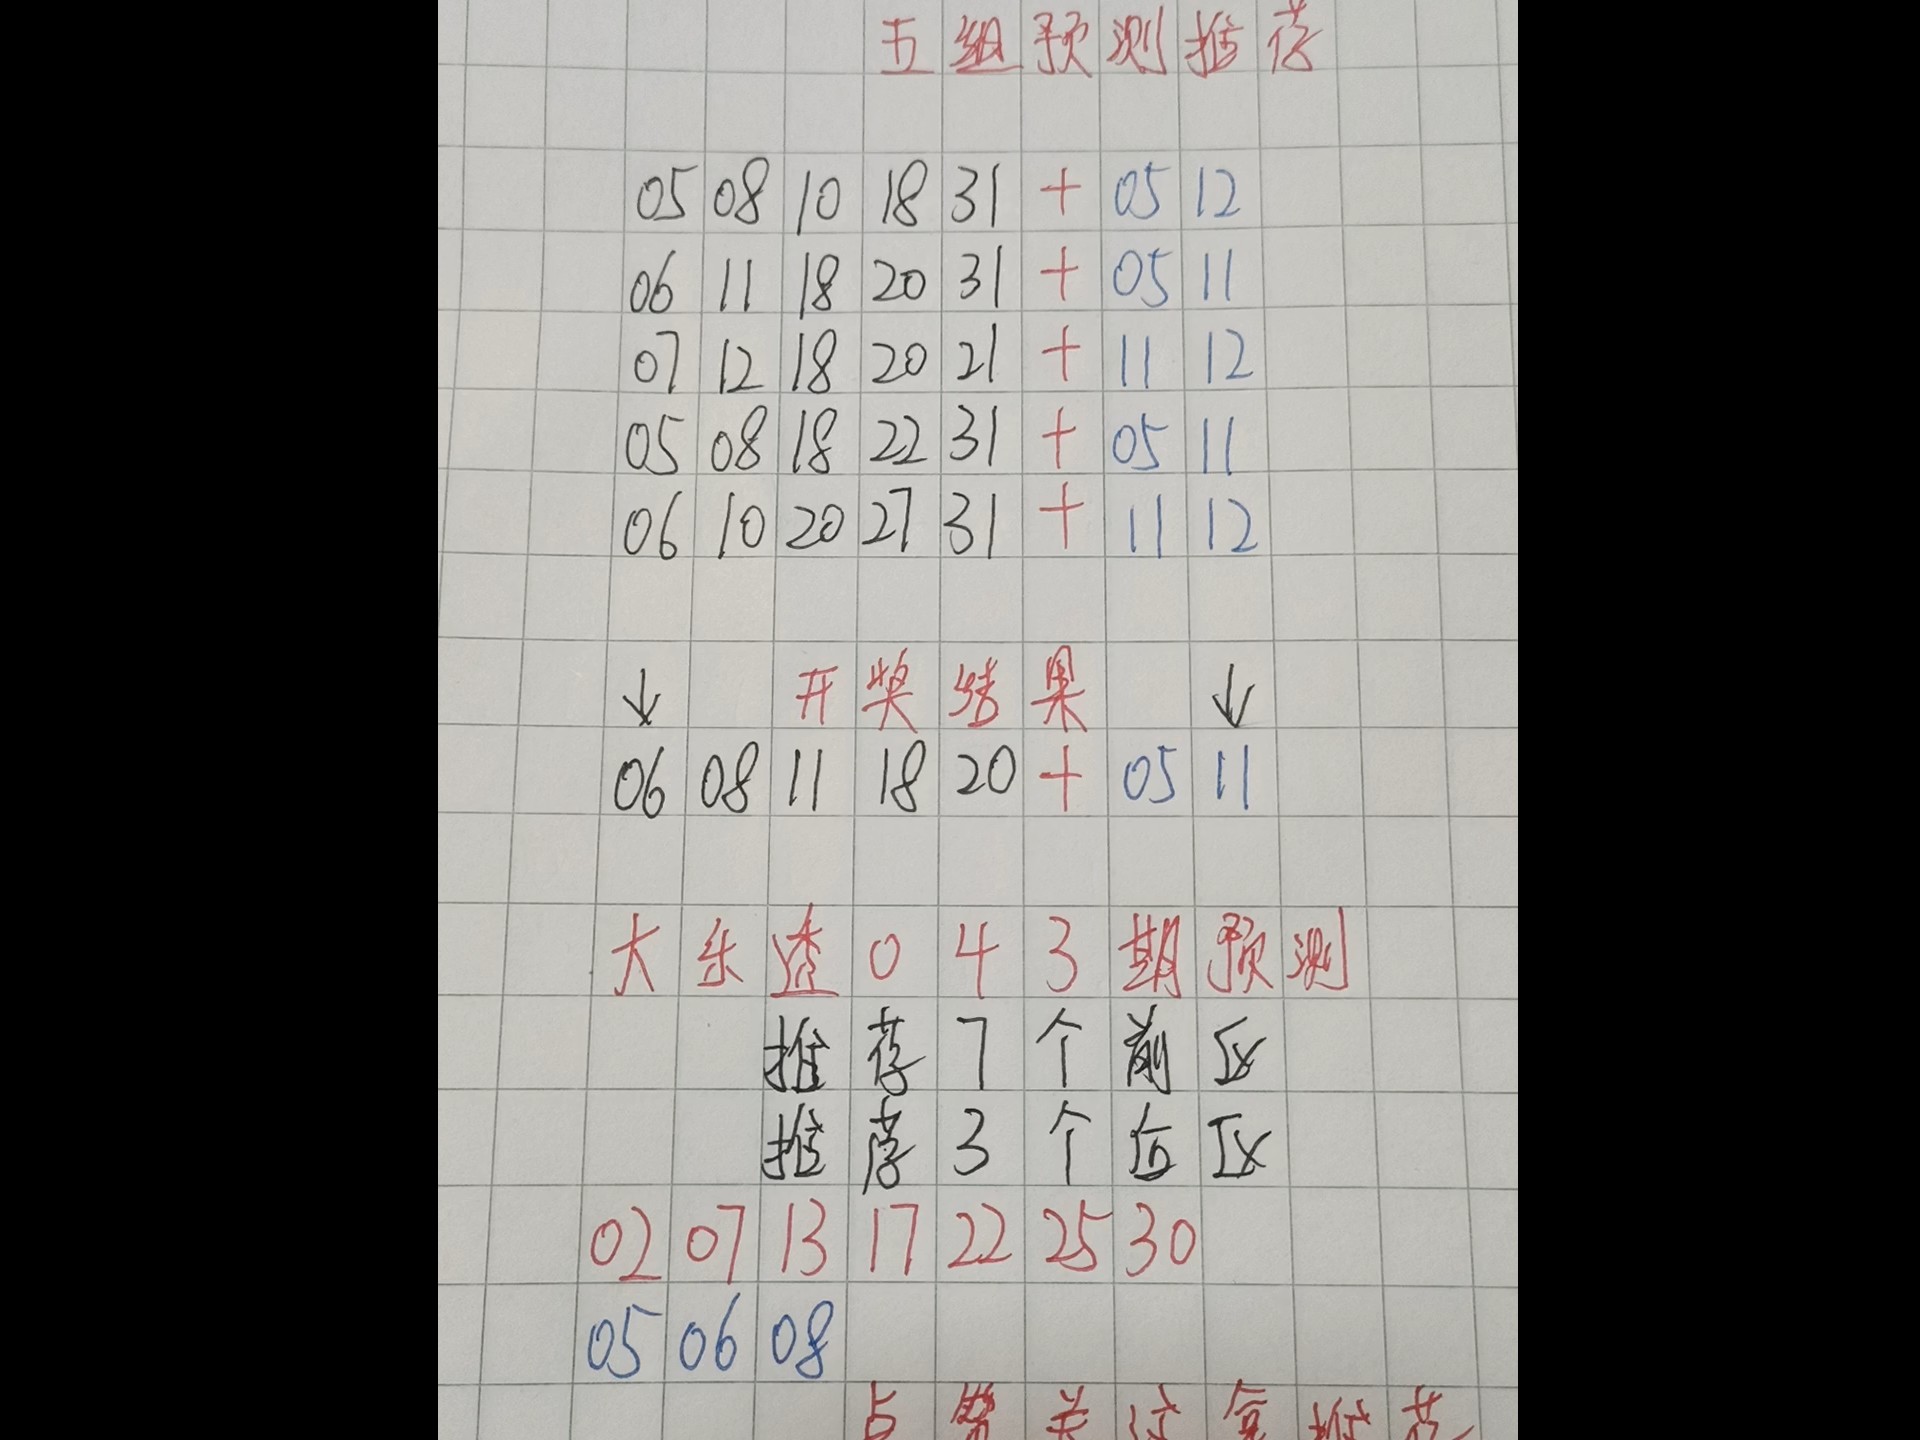 五组预测推荐
05 08 10 18 31 + 05 12
06 11 18 20 31 + 05 11
07 12 18 20 21 + 11 12
05 08 18 22 31 + 05 11
06 10 20 27 31 + 11 12
↓ 开奖结果 ↓
06 08 11 18 20 + 05 11
大乐透043期预测
推荐7个前区
推荐3个后区
02 07 13 17 22 25 30
05 06 08
点赞关注 推荐